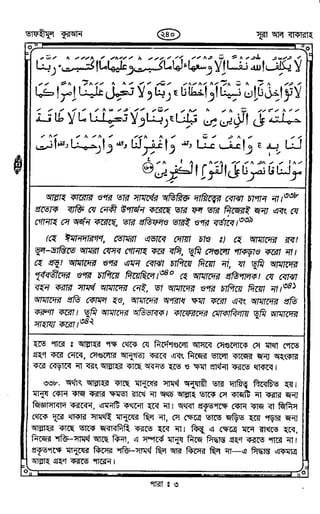 তাফহীমুল কুরআন
২৪০
সূরা আল বাকারাহ
لَا يُكَلِّفُ اللَّهُ نَفْسًا إِلَّا وُسْعَهَا لَهَا مَا كَسَبَتْ وَعَلَيْهَا مَا اكْتَسَبَتْ رَبَّنَا
لَا تُؤَاخِذْنَا إِنْ نَسِينَا أَوْ أَخْطَأْنَا رَبَّنَا وَلَا تَحْمِلْ عَلَيْنَا إِصْرًا كَمَا
حَمَلْتَهُ عَلَى الَّذِينَ مِنْ قَبْلِنَا رَبَّنَا وَلَا تُحَمِّلْنَا مَا لَا طَاقَةَ
لَنَا بِهِ وَاعْفُ عَنَّا وَاغْفِرْ لَنَا وَارْحَمْنَا أَنْتَ
مَوْلَانَا فَانْصُرْنَا عَلَى الْقَوْمِ الْكَافِرِينَ
আল্লাহ কারোর ওপর তার সামর্থের অতিরিক্ত দায়িত্বের বোঝা চাপান না।৩৩৮
প্রত্যেক ব্যক্তি যে নেকী উপার্জন করেছে তার ফল তার নিজেরই জন্য এবং যে
গোনাহ সে অর্জন করেছে, তার প্রতিফলও তারই ওপর বর্তাবে।৩৩৯
(হে ঈমানদারগণ, তোমরা এভাবে দোয়া চাও ঃ) হে আমাদের রব!
ভুল-ভ্রান্তিতে আমরা যেসব গোনাহ করে বসি, তুমি সেগুলো পাকড়াও করো না।
হে প্রভু! আমাদের ওপর এমন বোঝা চাপিয়ে দিয়ো না, যা তুমি আমাদের
পূর্ববর্তীদের ওপর চাপিয়ে দিয়েছিলে।৩৪০ হে আমাদের প্রতিপালক! যে বোঝা
বহন করার সামর্থ আমাদের নেই, তা আমাদের ওপর চাপিয়ে দিয়ো না।৩৪১
আমাদের প্রতি কোমল হও, আমাদের অপরাধ ক্ষমা করো এবং আমাদের প্রতি
করুণা করো। তুমি আমাদের অভিভাবক। কাফেরদের মোকাবিলায় তুমি আমাদের
সাহায্য করো।৩৪২
হতে পারে ঃ আল্লাহর পক্ষ থেকে যে নির্দেশগুলো আসবে সেগুলোকে সে মাথা পেতে
গ্রহণ করে নেবে, সেগুলোর আনুগত্য করবে এবং নিজের ভালো কাজের জন্য অহংকার
করে বেড়াবে না বরং আল্লাহর কাছে অবনত হতে ও ক্ষমা প্রার্থনা করতে থাকবে।
৩৩৮. অর্থাৎ আল্লাহর কাছে মানুষের সামর্থ অনুযায়ী তার দায়িত্ব বিবেচিত হয়।
মানুষ কোন কাজ করার ক্ষমতা রাখে না অথচ আল্লাহ তাকে সে কাজটি না করার জন্য
জিজ্ঞাসাবাদ করবেন, এমনটি কখনো হবে না। অথবা প্রকৃতপক্ষে কোন কাজ বা জিনিস
থেকে দূরে থাকার সামর্থই মানুষের ছিল না, সে ক্ষেত্রে তাতে জড়িত হয়ে পড়ার জন্য
আল্লাহর কাছে তাকে জবাবদিহি করতে হবে না। কিন্তু এ ক্ষেত্রে মনে রাখতে হবে,
নিজের শক্তি-সামর্থ আছে কিনা, এ সম্পর্কে মানুষ নিজে সিদ্ধান্ত গ্রহণ করতে পারে না।
প্রকৃতপক্ষে মানুষের কিসের শক্তি-সামর্থ ছিল আর কিসের ছিল না—এ সিদ্ধান্ত একমাত্র
আল্লাহ গ্রহণ করতে পারেন।
পারা ঃ ৩